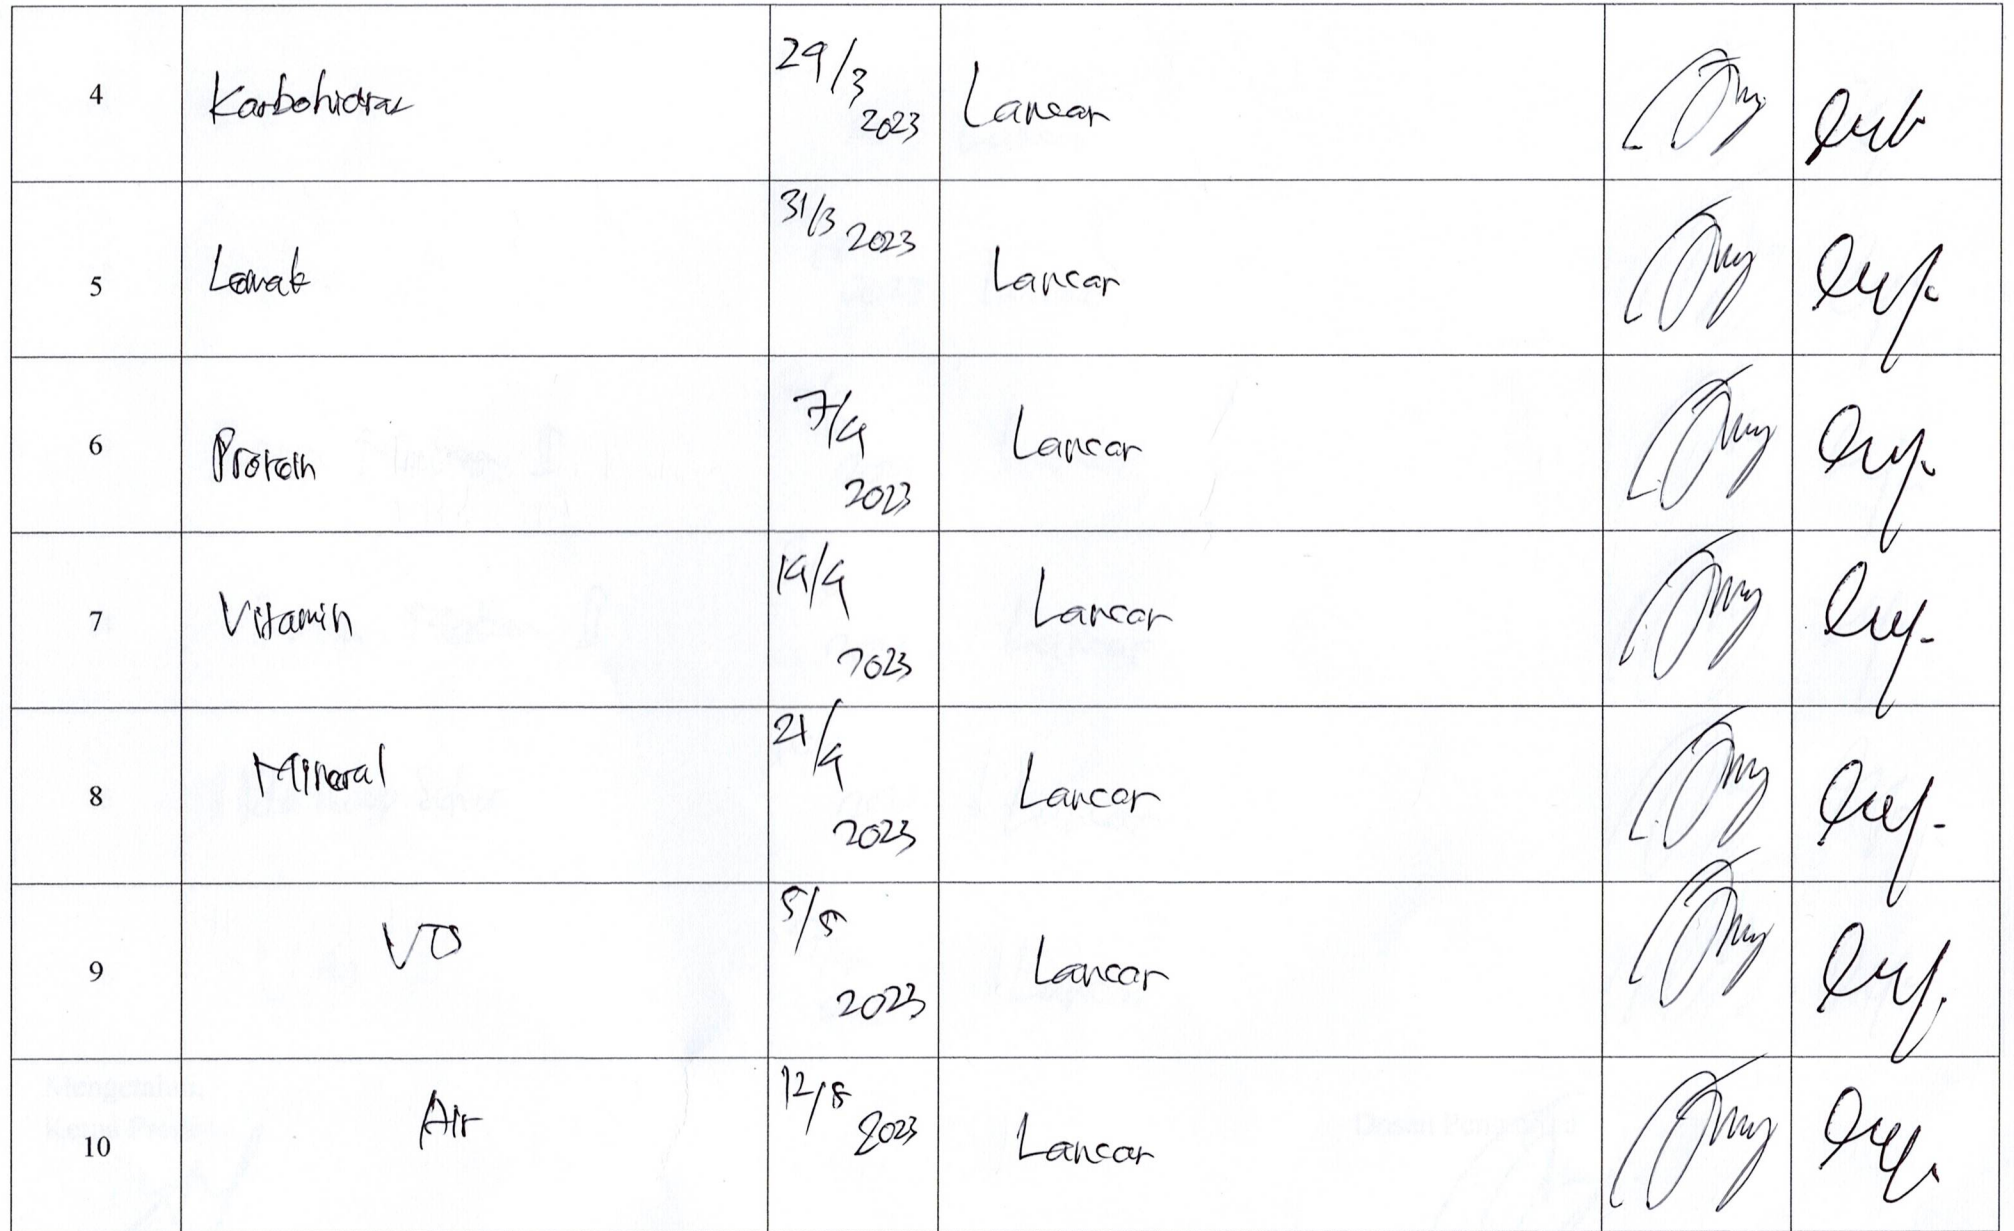 4 Karbohidrat 29/3 2023 Lancar
5 Lemak 31/3 2023 Lancar
6 Protein 7/4 2023 Lancar
7 Vitamin 14/4 2023 Lancar
8 Mineral 21/4 2023 Lancar
9 5/5 2023 Lancar
10 Air 12/5 2023 Lancar
Mengetahui,
Dosen Pengampu